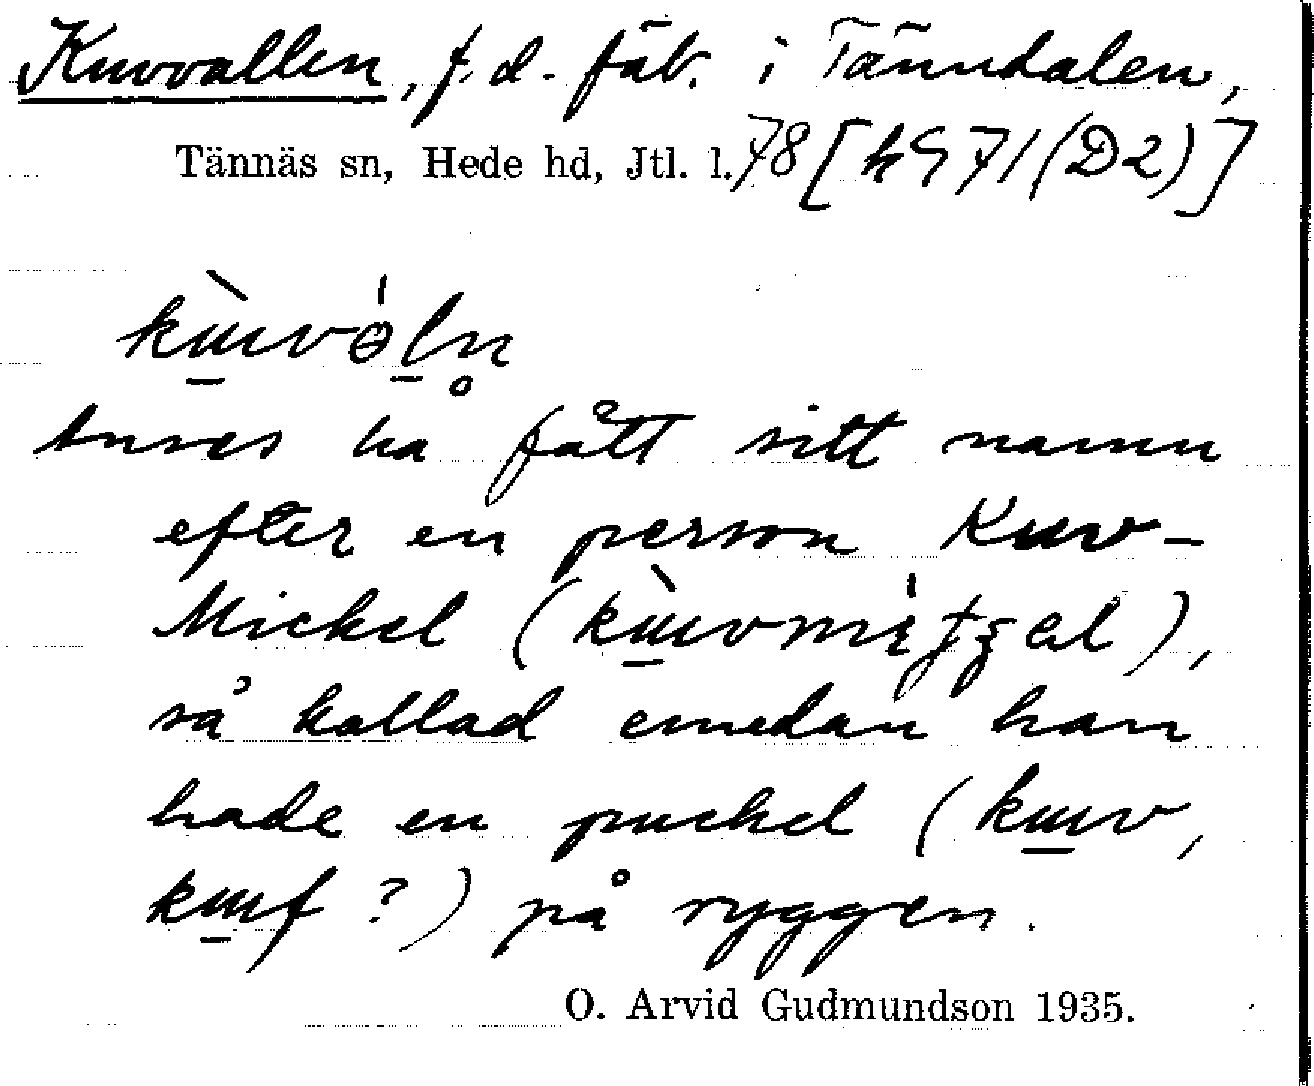 Kuvvallen, f.d. fäb. i Tänndalen,
Tännäs sn, Hede hd, Jtl. l. 78 [h971(D2)]
kɯ̀vvə̍ln̥
anses ha fått sitt namn
efter en person Kuv-
Mickel (
så kallad emedan han
hade en puckel (kɯv,
kɯf ?) på ryggen.
O. Arvid Gudmundson 1935.